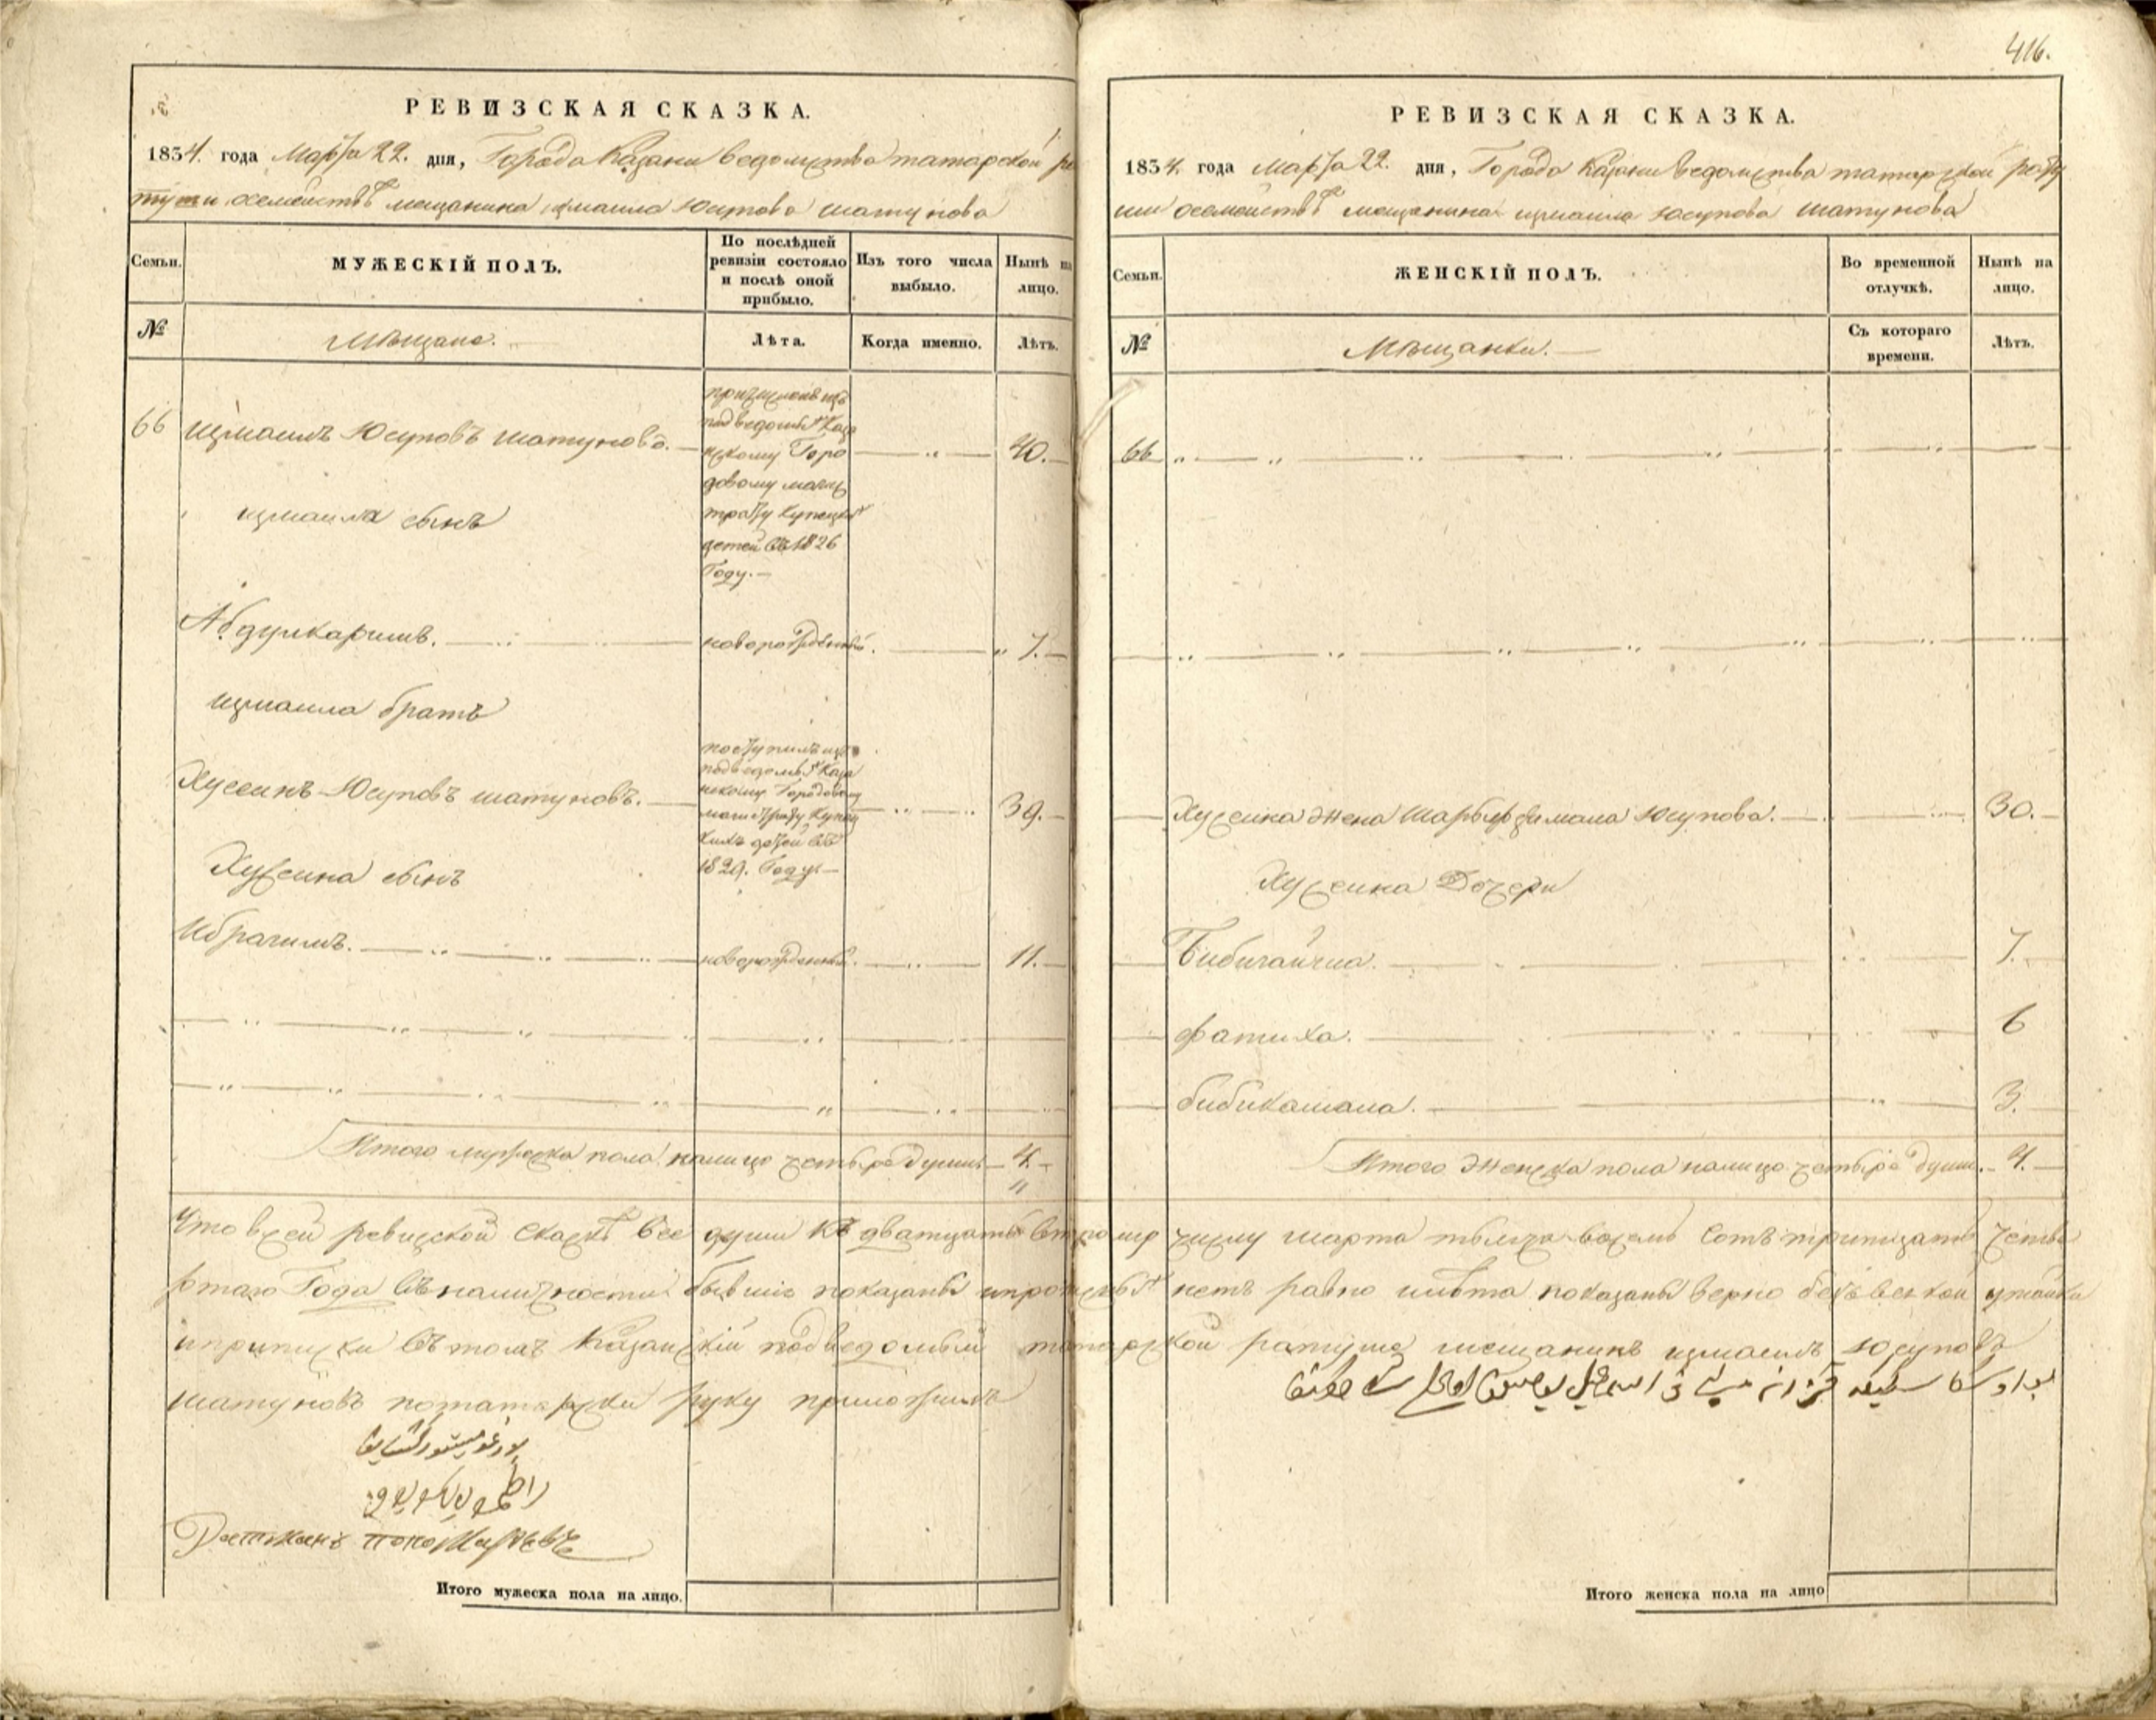 416.
РЕВИЗСКАЯ СКАЗКА.
1834. года Марта 22. дня, Города Казани ведомства татарской ра
туши о семействѣ мещанина измаила Юсупова шатунова
Семьи.
МУЖЕСКІЙ ПОЛЪ.
По послѣдней
ревизіи состояло
и послѣ оной
прибыло.
Изъ того числа
выбыло.
Нынѣ на
лицо.
№
Мѣщане.
Лѣта.
Когда именно.
Лѣтъ.
66 измаилъ Юсуповъ шатуновъ. 40.
причисленъ изъ
подведомыхъ Каза
нскому Горо
довому магис
трату купецкихъ
детей въ 1826
Году.
измаила сынъ
Абдулкаримъ. новорожденный. 7.
измаила братъ
Хусеинъ Юсуповъ шатуновъ. 39.
поступилъ изъ
подведомыхъ Каза
нскому Городовому
магистрату купец
кихъ детей въ
1829. Году
Хусеина сынъ
Ибрагимъ. новорожденный. 11.
Итого мужеска пола налицо четыре души 4.
РЕВИЗСКАЯ СКАЗКА.
1834. года Марта 22. дня, Города Казани ведомства татарской рату
ши о семействѣ мещанина измаила юсупова шатунова
Семьи.
ЖЕНСКІЙ ПОЛЪ.
Во временной
отлучкѣ.
Нынѣ на
лицо.
№
Мѣщанки.
Съ котораго
времени.
Лѣтъ.
66
Хусеина жена Юсупова. 30.
Хусеина Дочери
Бибигайша. 7.
Фатиха. 6
бибикамала. 3.
Итого женска пола налицо четыре души. 4.
Что в сей ревизской Сказкѣ все души къ дватцать второму числу марта тысяча восемь Сотъ тритцать четвер
ртаго Года въ наличности бывшие показаны и прописныхъ нетъ равно и лѣта показаны верно безъ всякой утайки
и приписки въ томъ Казанской подведомый татарской ратуше мещанинъ измаилъ юсуповъ
шатуновъ потатарски руку приложилъ
Итого мужеска пола на лицо.
Итого женска пола на лицо